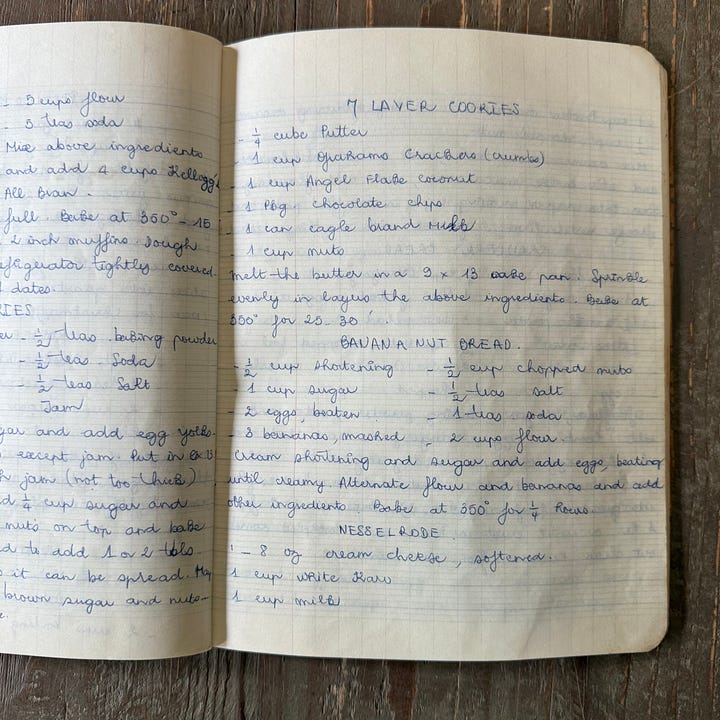 5 cups flour
- 5 teas soda
Mix above ingredients
and add 4 cups Kellogg's
All Bran.
full. Bake at 350° - 15
2 inch muffins. Dough
efrigerator tightly covered.
dates.
RIES
er - 1/2 teas. baking powder
- 1/2 teas Soda
- 1/2 teas Salt
Jam
gar and add egg yolks.
except jam. Put in
h jam (not too thick)
d 1/4 cup sugar and
nuts on top and bake
d to add 1 or 2 tbls
it can be spread. May
brown sugar and nuts -
7 LAYER COOKIES
- 1/4 cube Butter
- 1 cup Grahams Crackers (crumbs)
- 1 cup Angel Flake Coconut
- 1 Pkg chocolate chips
- 1 can eagle brand Milk
- 1 cup nuts
Melt the butter in a 9 x 13 cake pan. Sprinkle
evenly in layers the above ingredients. Bake at
350° for 25-30'.
BANANA NUT BREAD.
- 1/2 cup shortening - 1/2 cup chopped nuts
- 1 cup sugar - 1/2 teas salt
- 2 eggs, beaten - 1 teas soda
- 3 bananas, mashed - 2 cups flour
Cream shortening and sugar and add eggs, beating
until creamy. Alternate flour and bananas and add
other ingredients Bake at 350° for 1/4 hours.
NESSELRODE
1 - 8 oz cream cheese, softened.
1 cup white Karo
1 cup milk